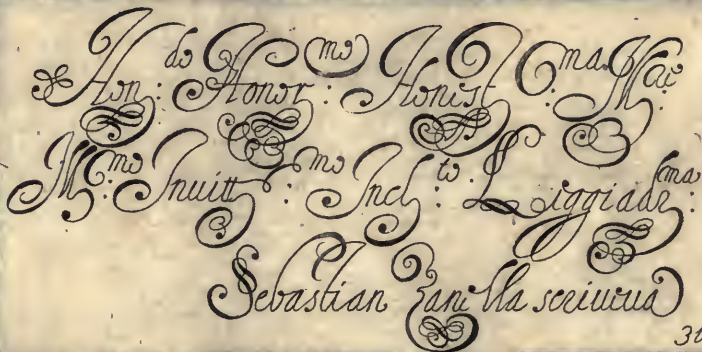 Hon:do Honor:mo Honest:ma Mac:
M:mo Inuitt:mo Incl:to Liggiadr:ma
Sebastian Zanella scriueua